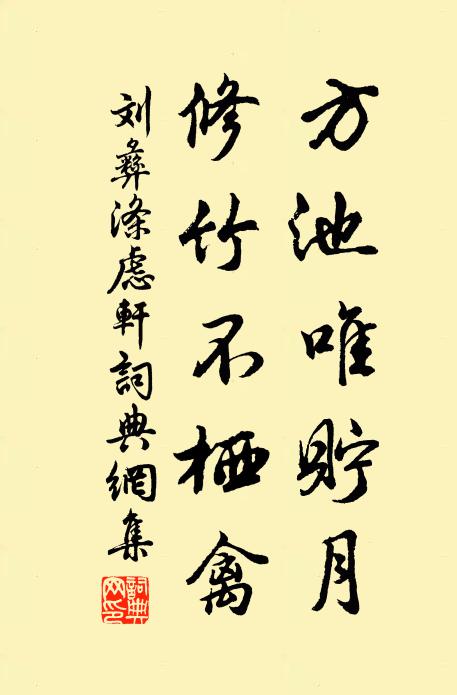 方池唯貯月
修竹不栖禽
刘彝滌慮軒詞典網集
詞典网印